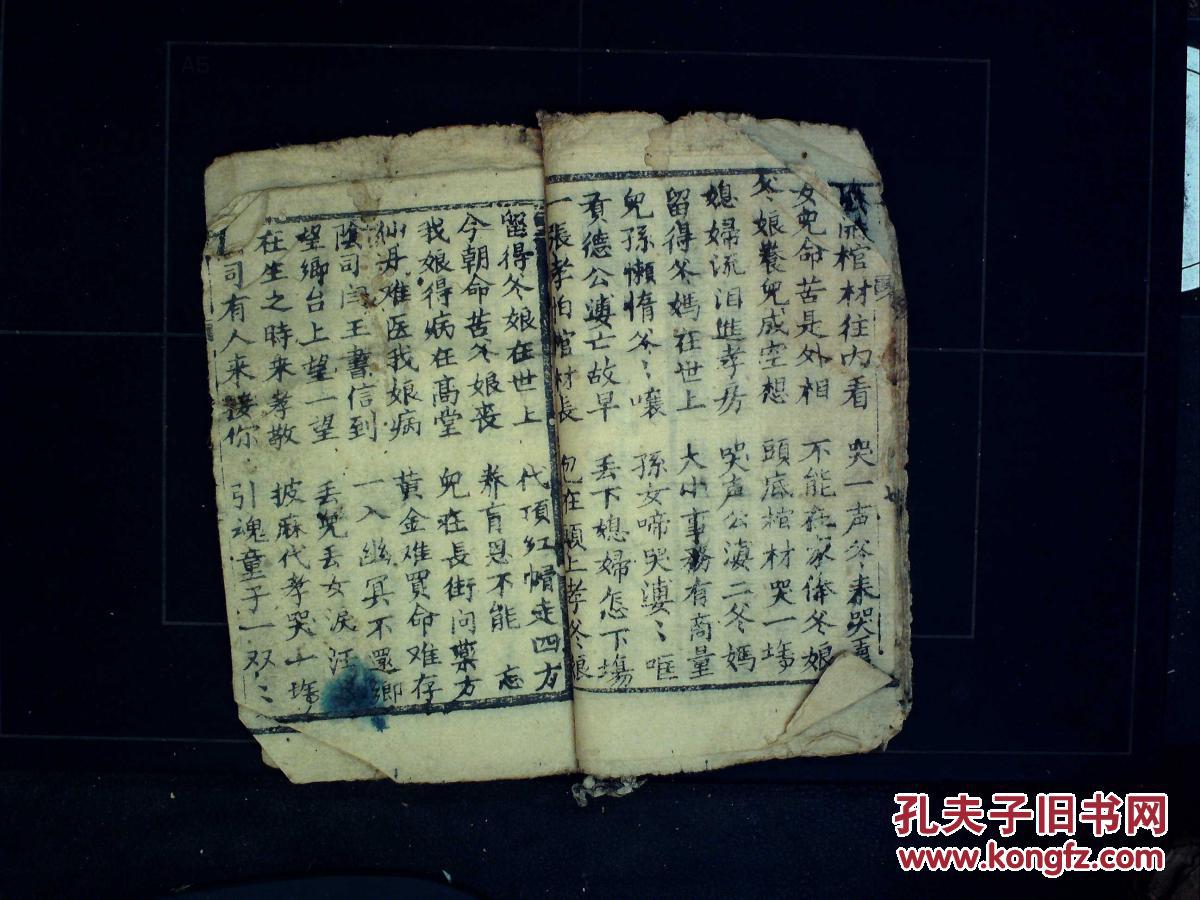 棺材往內看 哭一声爷来哭
女兒命苦是外相 不能在家俸爷娘
爷娘養兒成空想 頭底棺材哭一塲
媳婦流泪進孝房 哭声公婆二爷媽
留得爷媽在世上 大小事務有商量
兒孫懶惰爷〻嚷 孫女啼哭婆〻哐
賢德公婆亡故早 丢下媳婦怎下塲
一張孝怕官材長 包在頭上孝爷娘
留得爷娘在世上 代頂紅帽走四方
今朝命苦爷娘丧 养育恩不能忘
我娘得病在高堂 兒在長街问藥方
仙丹难医我娘病 黄金难買命难存
陰司闫王書信到 一入幽冥不還鄉
望鄉台上望一望 丢兒丢女淚汪
在生之時来孝敬 披麻代孝哭一塲
司有人来接你 引魂童子一双〻
A5
孔夫子旧书网
www.kongfz.com